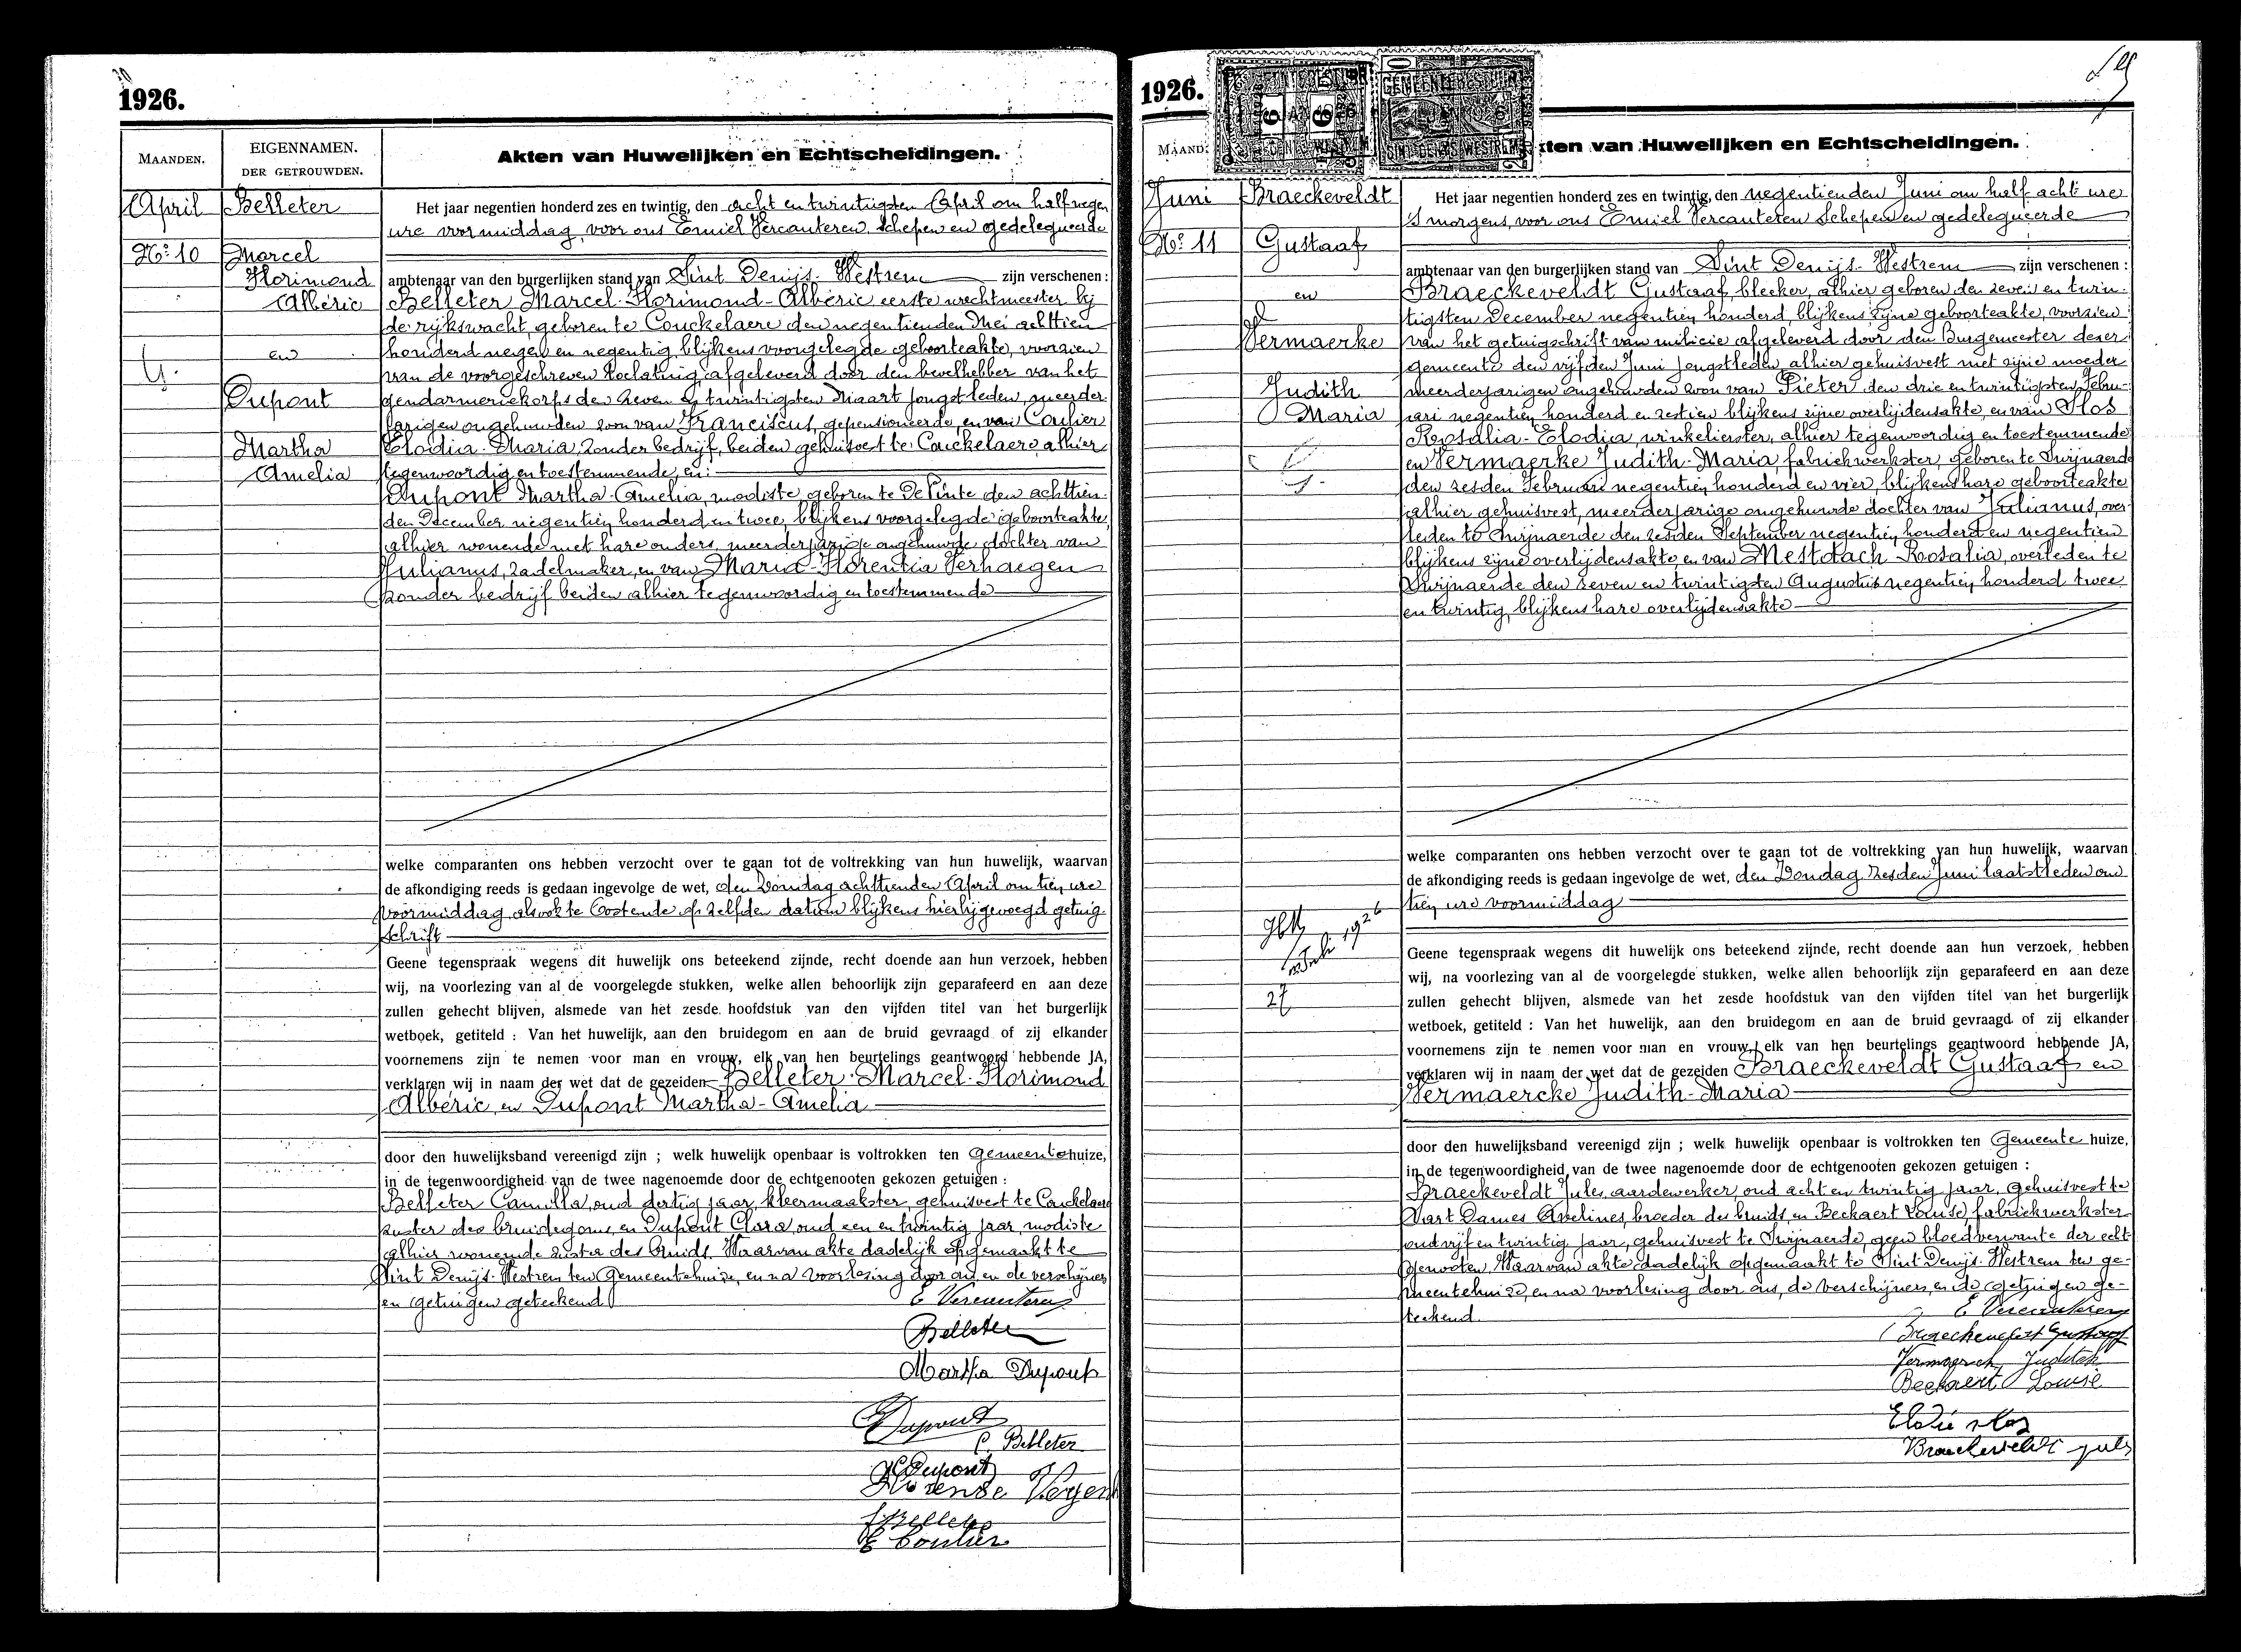 1926.
MAANDEN.
EIGENNAMEN.
DER GETROUWDEN.
Akten van Huwelijken en Echtscheidingen.
April
No 10
Belleter
Marcel
Florimond
Albéric
en
Dupont
Martha
Amelia
Het jaar negentien honderd zes en twintig, den acht en twintigsten April om half negen
ure voormiddag, voor ons Emiel Vercauteren, Schepen en gedelegueerde
ambtenaar van den burgerlijken stand van Sint Denijs-Westrem zijn verschenen:
Belleter Marcel-Florimond-Albéric eerste wachtmeester bij
de rijkswacht, geboren te Couckelaere den negentienden Mei achttien
honderd negen en negentig, blijkens voorgelegde geboorteakte, voorzien
van de voorgeschreven toelating, afgeleverd door den bevelhebber van het
gendarmeriekorps den zeven & twintigsten Maart jongstleden, meerder-
jarigen ongehuwden zoon van Franciscus, gepensioneerde, en van Coulier
Elodia-Maria, zonder bedrijf, beiden gehuisvest te Couckelaere, alhier
tegenwoordig en toestemmende, en:
Dupont Martha-Amelia, modiste, geboren te De Pinte den achttien-
den December negentien honderd en twee, blijkens voorgelegde geboorteakte,
alhier wonende met hare ouders, meerderjarige ongehuwde dochter van
Julianus, zadelmaker, en van Maria-Florentia Verhaegen
zonder bedrijf beiden alhier tegenwoordig en toestemmende
welke comparanten ons hebben verzocht over te gaan tot de voltrekking van hun huwelijk, waarvan
de afkondiging reeds is gedaan ingevolge de wet, den Zondag achttienden April om tien ure
voormiddag alsook te Oostende op zelfden datum blijkens hierbijgevoegd getuig-
schrift
Geene tegenspraak wegens dit huwelijk ons beteekend zijnde, recht doende aan hun verzoek, hebben
wij, na voorlezing van al de voorgelegde stukken, welke allen behoorlijk zijn geparafeerd en aan deze
zullen gehecht blijven, alsmede van het zesde hoofdstuk van den vijfden titel van het burgerlijk
wetboek, getiteld : Van het huwelijk, aan den bruidegom en aan de bruid gevraagd of zij elkander
voornemens zijn te nemen voor man en vrouw, elk van hen beurtelings geantwoord hebbende JA,
verklaren wij in naam der wet dat de gezeiden Belleter-Marcel-Florimond
Albéric en Dupont Martha-Amelia
door den huwelijksband vereenigd zijn ; welk huwelijk openbaar is voltrokken ten Gemeentehuize,
in de tegenwoordigheid van de twee nagenoemde door de echtgenooten gekozen getuigen :
Belleter Camilla, oud dertig jaar, kleermaakster, gehuisvest te Couckelaere
zuster des bruidegoms, en Dupont Clara, oud een en twintig jaar, modiste
alhier wonende zuster des bruids. Waarvan akte dadelijk opgemaakt te
Sint Denijs-Westrem ten Gemeentehuize, en na voorlezing door ons en de verschijners
en getuigen geteekend
E Vercauteren
Belleter
Martha Dupont
Dupont
C. Belleter
Dupont
F Belleter
E Coulier
1926.
MAAND
ten van Huwelijken en Echtscheidingen.
Juni
No 11
Braeckeveldt
Gustaaf
en
Vermaerke
Judith
Maria
Het jaar negentien honderd zes en twintig, den negentienden Juni om half acht ure
's morgens, voor ons Emiel Vercauteren Schepen en gedelegueerde
ambtenaar van den burgerlijken stand van Sint Denijs-Westrem zijn verschenen :
Braeckeveldt Gustaaf, bleeker, alhier geboren den zeven en twin-
tigsten December negentien honderd, blijkens zijne geboorteakte, voorzien
van het getuigschrift van milicie afgeleverd door den Burgemeester dezer
gemeente den vijfden Juni jongstleden, alhier gehuisvest met zijne moeder
meerderjarigen ongehuwden zoon van Pieter den drie en twintigsten Febru-
ari negentien honderd en zestien blijkens zijne overlijdensakte, en van Slos
Rosalia-Elodia, winkelierster, alhier tegenwoordig en toestemmende
en Vermaerke Judith-Maria, fabriekwerkster, geboren te Zwijnaerde
den zesden Februari negentien honderd en vier, blijkens hare geboorteakte
alhier gehuisvest, meerderjarige ongehuwde dochter van Julianus, over-
leden te Zwijnaerde den zesden September negentien honderd en negentien
blijkens zijne overlijdensakte en van Mestdach Rosalia, overleden te
Zwijnaerde den zeven en twintigsten Augustus negentien honderd twee
en twintig, blijkens hare overlijdensakte
welke comparanten ons hebben verzocht over te gaan tot de voltrekking van hun huwelijk, waarvan
de afkondiging reeds is gedaan ingevolge de wet, den Zondag zesden Juni laatstleden om
tien ure voormiddag
1926
27
Geene tegenspraak wegens dit huwelijk ons beteekend zijnde, recht doende aan hun verzoek, hebben
wij, na voorlezing van al de voorgelegde stukken, welke allen behoorlijk zijn geparafeerd en aan deze
zullen gehecht blijven, alsmede van het zesde hoofdstuk van den vijfden titel van het burgerlijk
wetboek, getiteld : Van het huwelijk, aan den bruidegom en aan de bruid gevraagd of zij elkander
voornemens zijn te nemen voor man en vrouw, elk van hen beurtelings geantwoord hebbende JA,
verklaren wij in naam der wet dat de gezeiden Braeckeveldt Gustaaf en
Vermaercke Judith-Maria
door den huwelijksband vereenigd zijn ; welk huwelijk openbaar is voltrokken ten Gemeente huize,
in de tegenwoordigheid van de twee nagenoemde door de echtgenooten gekozen getuigen :
Braeckeveldt Jules, aardewerker, oud acht en twintig jaar, gehuisvest te
Wart Dames Avelines, broeder des bruids, en Beckaert Louise fabriekwerkster
oud vijf en twintig jaar, gehuisvest te Zwijnaerde, geen bloedverwante der echt-
genooten. Waarvan akte dadelijk opgemaakt te Sint-Denijs-Westrem ten ge-
meentehuize, en na voorlezing door ons, de verschijners en de getuigen ge-
teekend.
E Vercauteren
Braeckeveldt Gustaaf
Judith
Beckaert Louise
Elodie Slos
Braeckeveldt Juls